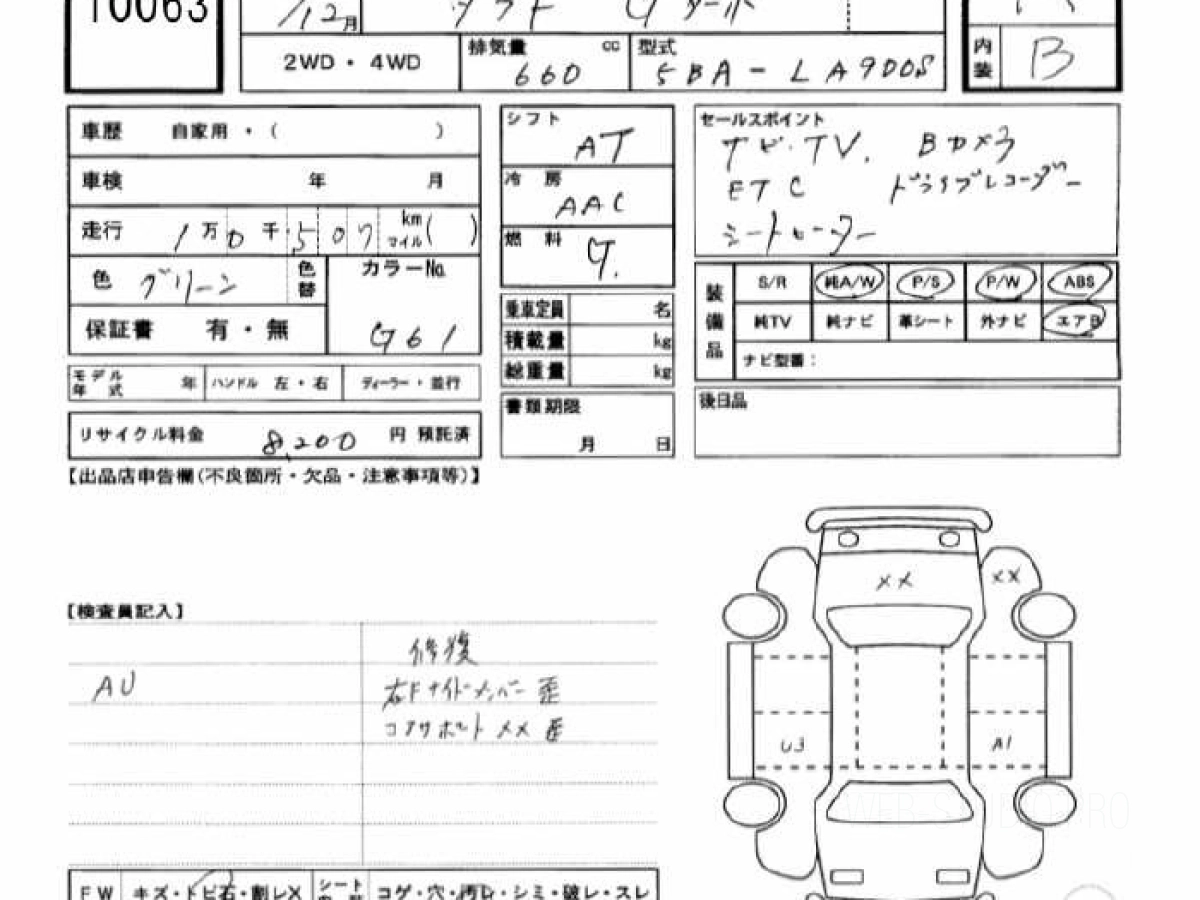 10063
12月 タフト Gターボ
2WD・4WD 排気量 660 cc 型式 5BA-LA900S 内装 B
車歴 自家用・( )
車検 年 月
走行 1万0千507 km マイル( )
色 グリーン 色替 カラーNo. G61
保証書 有・無
モデル年式 年 ハンドル 左・右 ディーラー・並行
リサイクル料金 8,200 円 預託済
シフト AT
冷房 AAC
燃料 G.
乗車定員 名
積載量 kg
総重量 kg
書類期限 月 日
セールスポイント
ナビ・TV. Bカメラ
ETC ドライブレコーダー
シートヒーター
装備品 S/R 純A/W P/S P/W ABS
純TV 純ナビ 革シート 外ナビ エアB
ナビ型番:
後日品
【出品店申告欄(不良箇所・欠品・注意事項等)】
【検査員記入】
修復
AU 右Fサイドメンバー歪
コアサポート XX 歪
XX XX
U3 A1
FW キズ・トビ石・割レX シート コゲ・穴・汚レ・シミ・破レ・スレ